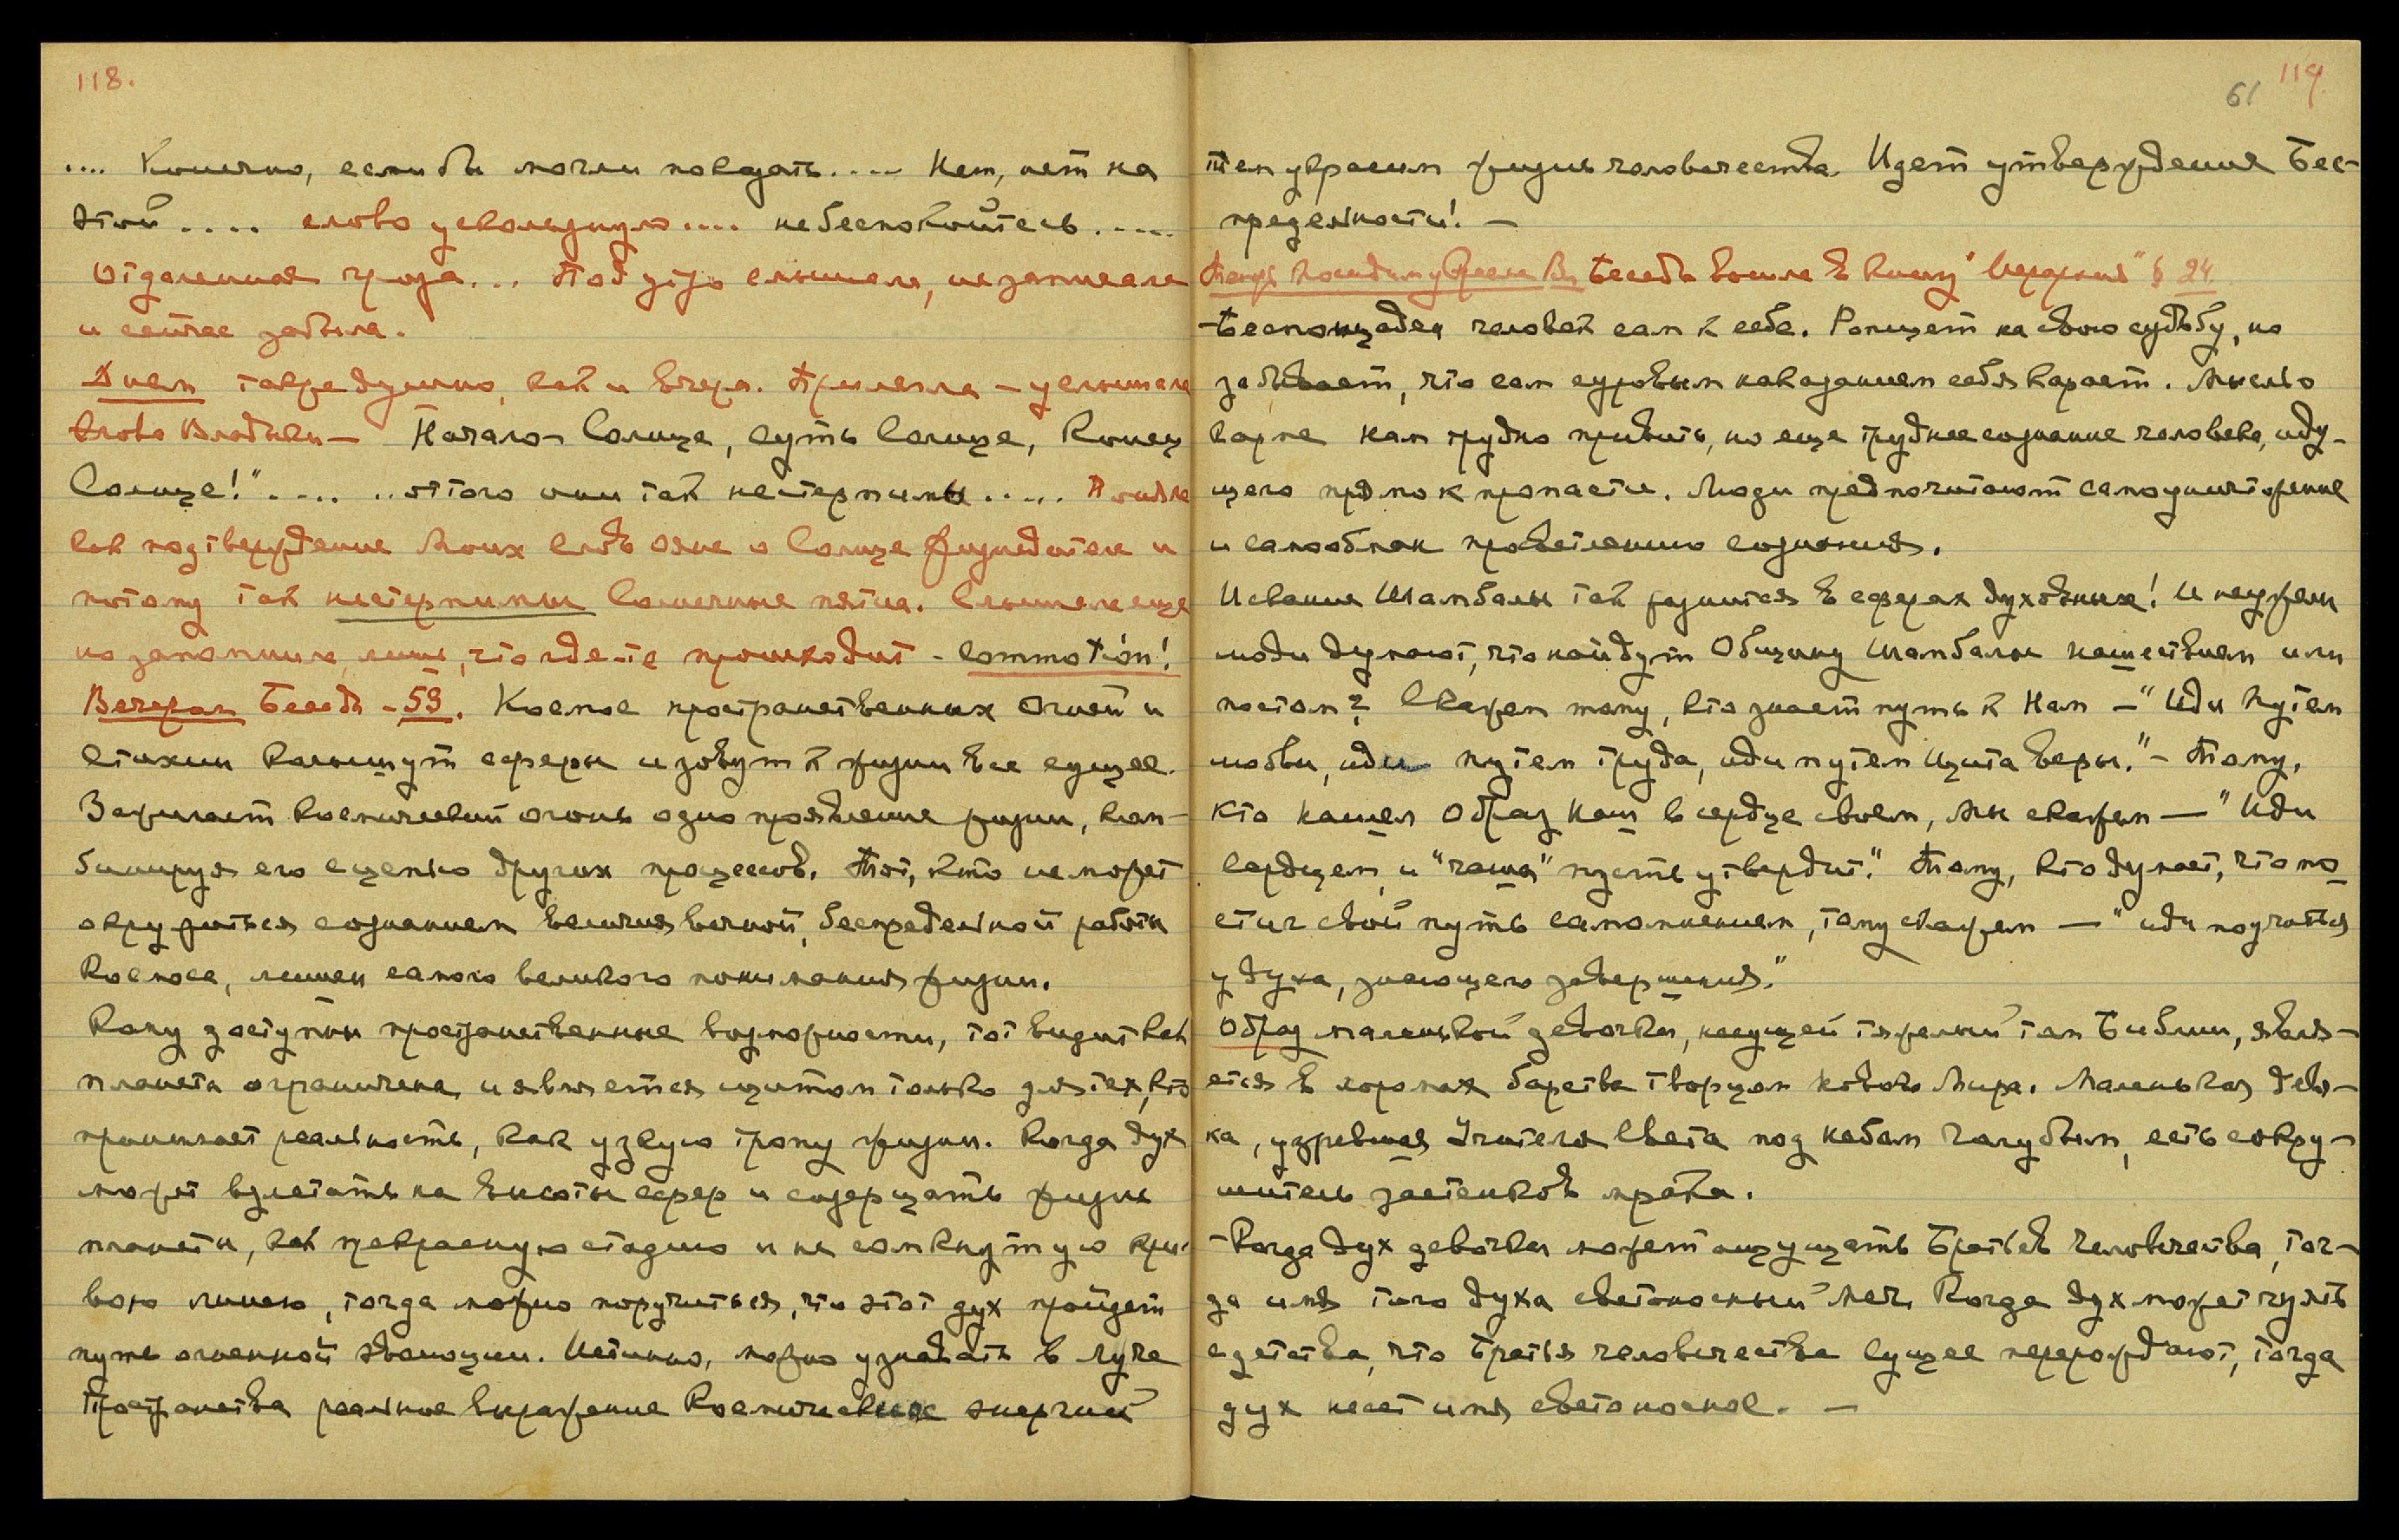 118.
.... Конечно, если бы могли поведать.... Нет, нет на
этой .... слово ускользнуло .... не беспокойтесь .....
Отдаленная гроза... Под утро слышала, не записала
и сейчас забыла.
Днем так же душно, как и вчера. Прилегла – услышала
слово Владыки – Начало – Солнце, Суть Солнце, Конец
Солнце!" .... .. оттого они так нестерпимы ..... Поняла
как подтверждение Моих слов о Солнце и
потому так нестерпимы Солнечные пятна. Слышала еще
но запомнила лишь, что где-то происходит – commotion!
Вечером Беседа – 59. Космос пространственных Огней и
стихии колышут сферы и зовут к жизни все сущее.
Зажигает космический огонь одно проявление жизни, ком-
бинируя его с цепью других процессов. Тот, кто не может
окружиться сознанием величия вечной, беспредельной работы
Космоса, лишен самого великого понимания жизни.
Кому доступны пространственные возможности, тот видит как
планета ограничена и является щитом только для тех, кто
принимает реальность, как узкую тропу жизни. Когда дух
может взлетать на высоты сфер и созерцать жизнь
планеты, как прекрасную стадию и не сомкнутую кри-
вою линию, тогда можно поручиться, что этот дух пройдет
путь огненной эволюции. Истинно, можно узнавать в луче
Пространства реальное выражение Космических энергий
119.
61
тем украсим жизнь человечества. Идет утверждение Бес-
предельности! –
Беседа вошла в книгу "Иерархия" § 24
– Беспощаден человек сам к себе. Ропщет на свою судьбу, но
забывает, что сам суровым наказанием себя карает. Мысль о
карме нам трудно привить, но еще труднее сознание человека, иду-
щего прямо к пропасти. Люди предпочитают самоуничтожение
и самообман просветлению сознания.
Искание Шамбалы так разнится в сферах духовных! И неужели
люди думают, что найдут Общину Шамбалы нашествием или
постом? Скажем тому, кто знает путь к Нам – "Иди путем
любви, иди путем труда, иди путем щита веры." – Тому,
кто нашел Образ Наш в сердце своем, Мы скажем — "Иди
сердцем, и "чаша" пусть утвердит." Тому, кто думает, что по
стиг свой путь самомнением, тому скажем — "иди поучиться
у духа, знающего завершения."
Образ маленькой девочки, несущей тяжелый том Библии, явля-
ется в хоромах барства творцом нового Мира. Маленькая девоч-
ка, узревшая Учителя Света под небом голубым, есть сокру-
шитель застенков мрака.
– Когда дух девочки может ощущать Братьев Человечества, тог-
да имя того духа светоносный меч. Когда дух может чуять
с детства, что Братья человечества сущее перерождают, тогда
дух несет имя светоносное. –